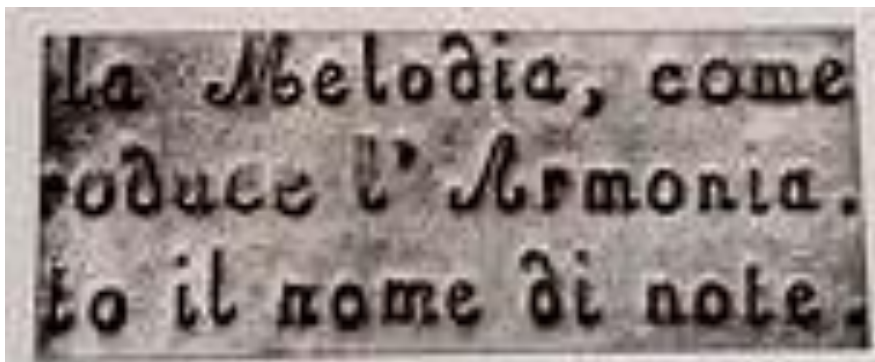 la Melodia, come
roduce l'Armonia.
to il nome di note.